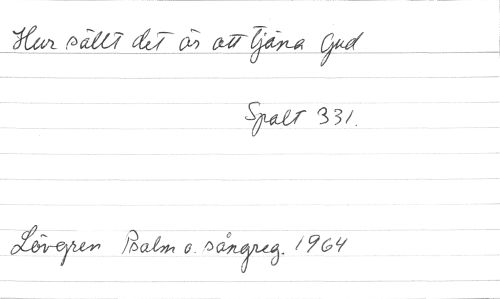 Hur sällt det är att tjäna Gud
Spalt 331.
Lövgren Psalm o. sångreg. 1964